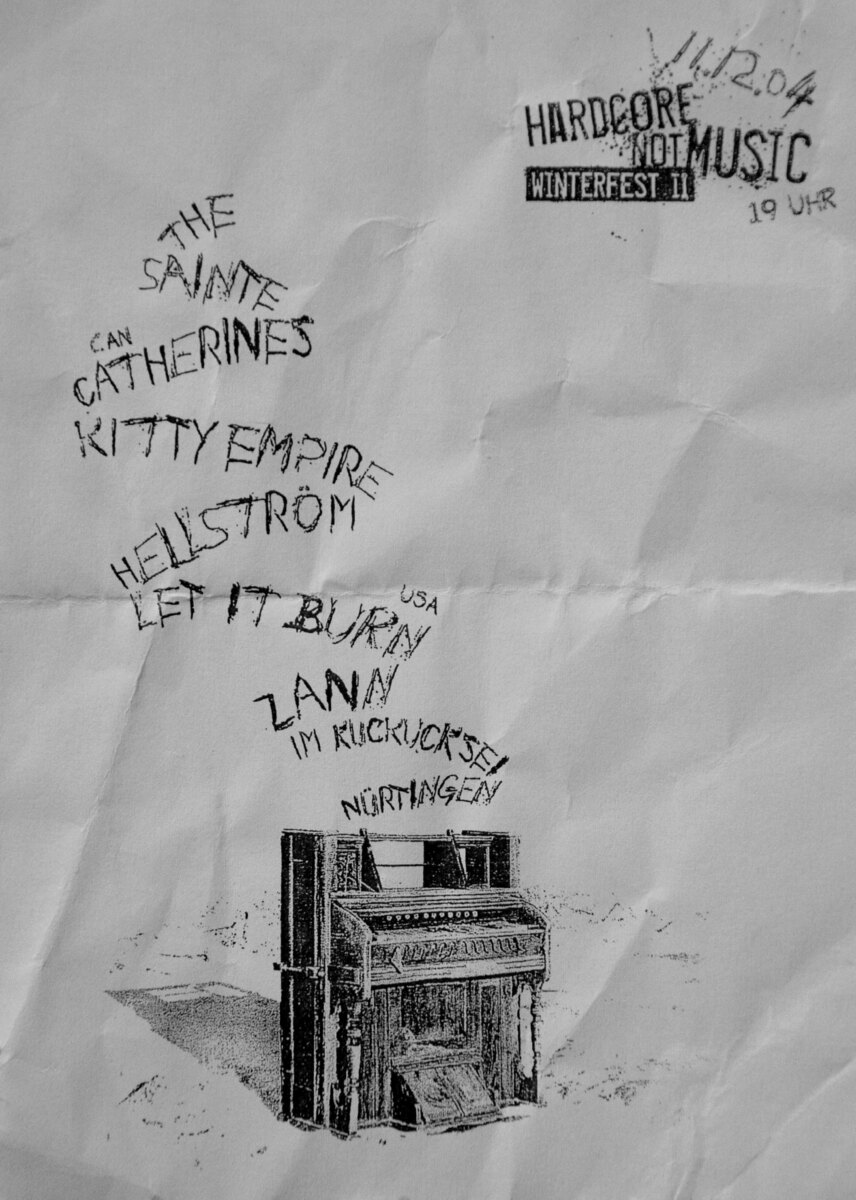 11.12.04
HARDCORE
NOT MUSIC
WINTERFEST II
19 UHR
THE
SAINTE
CAN
CATHERINES
KITTY EMPIRE
HELLSTRÖM
USA
LET IT BURN
ZANN
IM KUCKUCKSEI
NÜRTINGEN